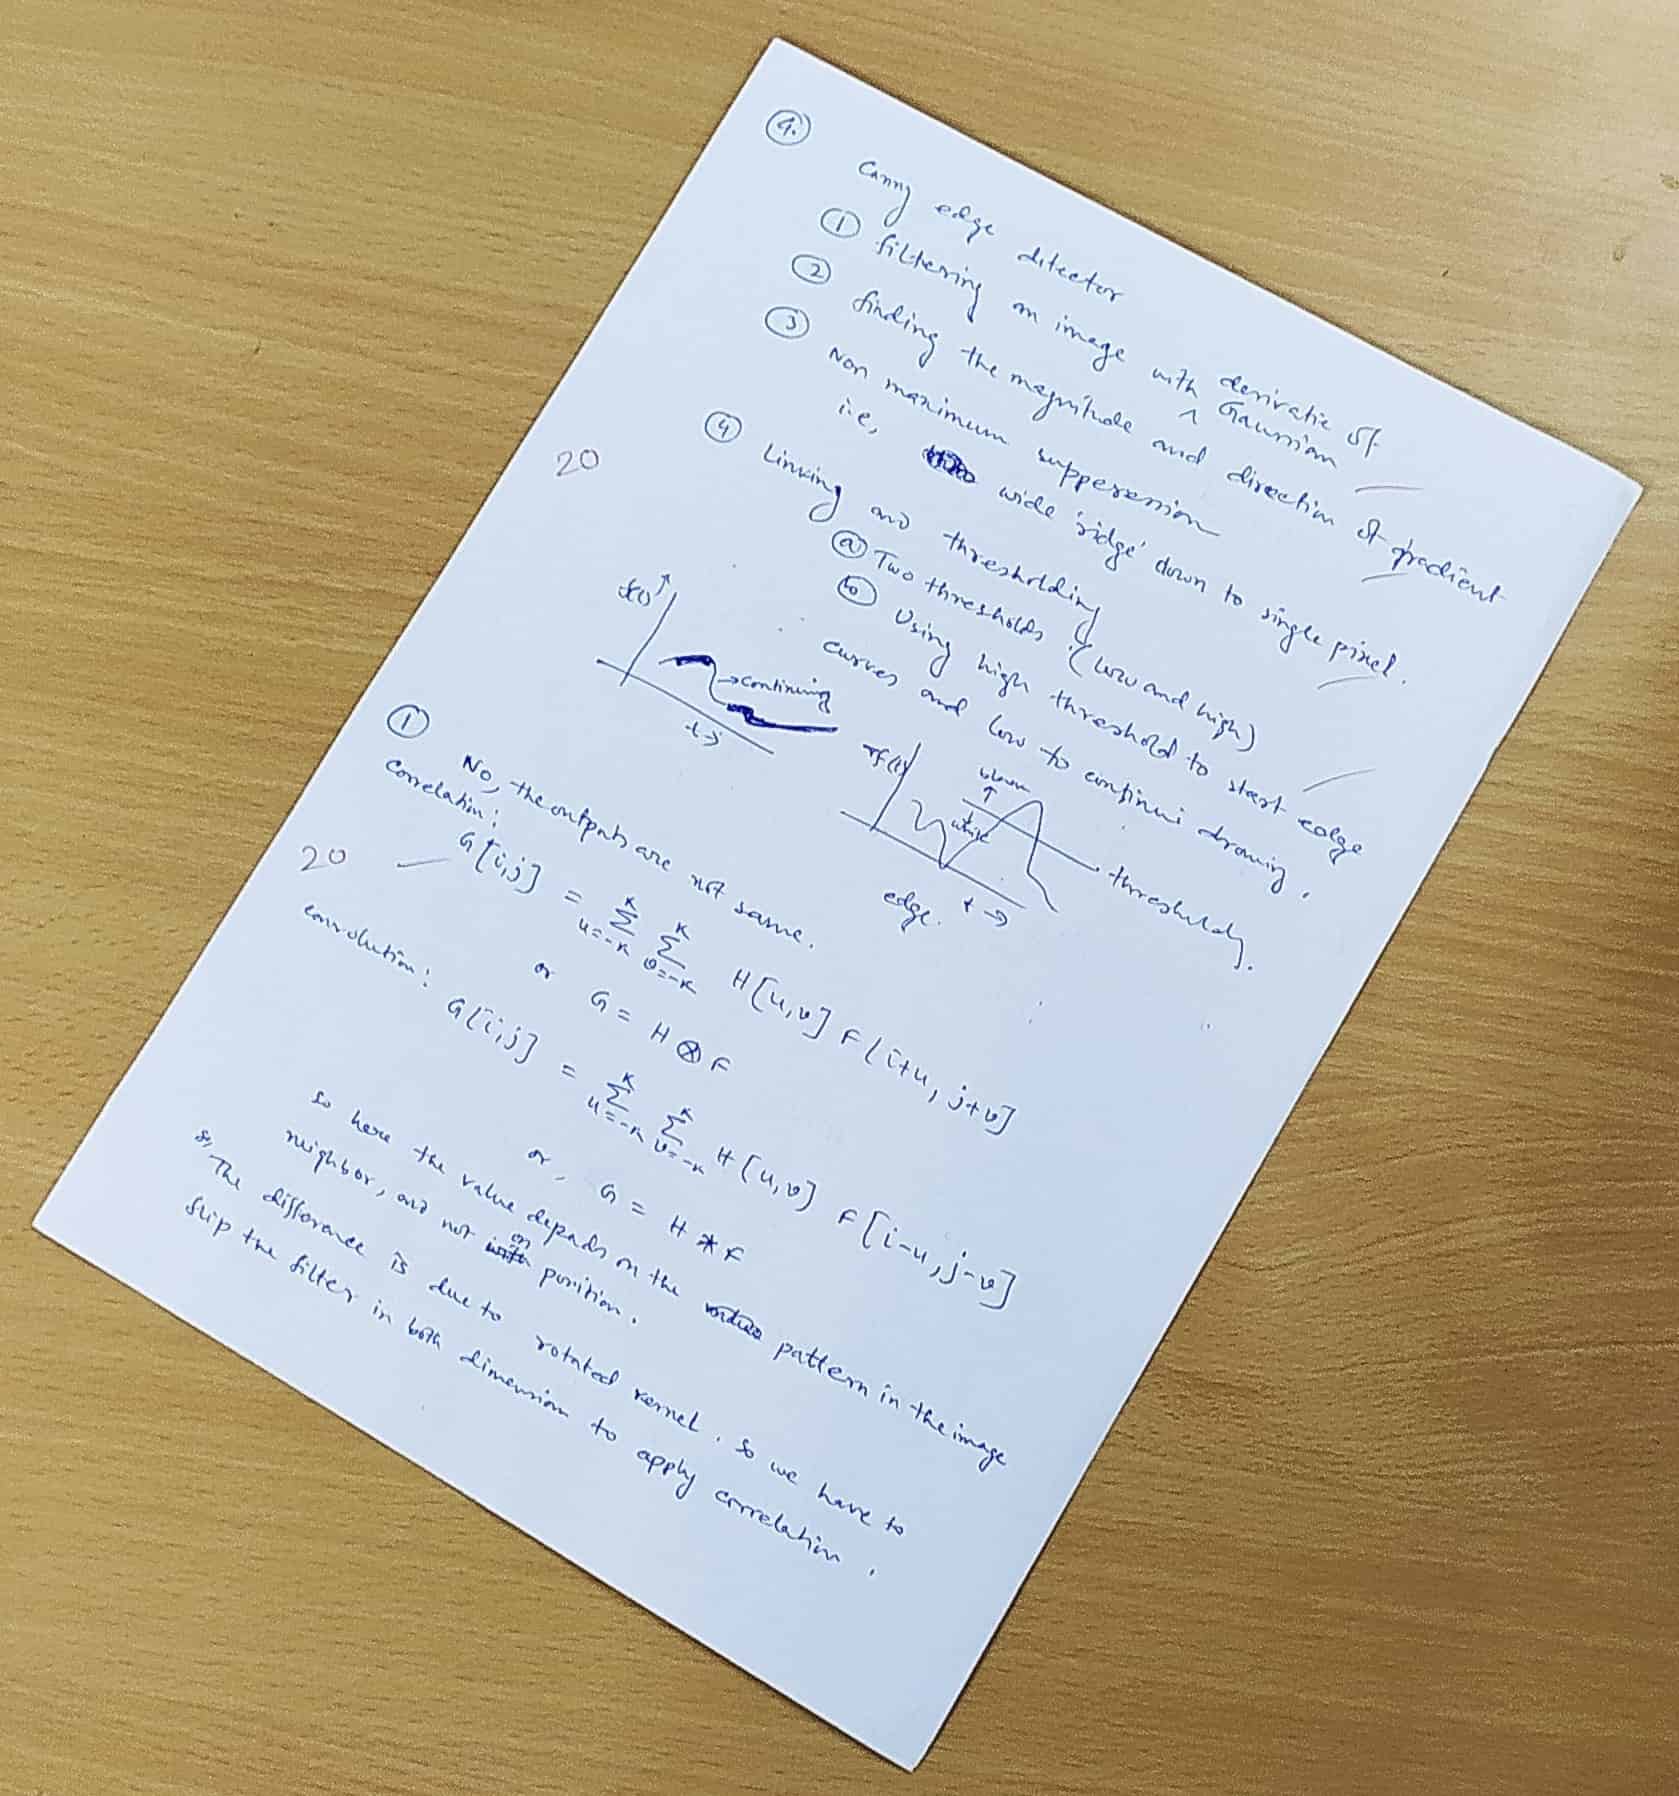 4.
Canny edge ditector
① filtering an image with derivatie of Gaussian
② finding the magnitude and direction of gradient
③ Non maximum supperession
i.e, wide 'ridge' down to single pixel.
④ Linking and thresholding
ⓐ Two thresholds (low and high)
ⓑ Using high threshold to start edge
curves and low to continui drawing.
20
continuing
t→
edge.
t→
thresholds.
① No, the outputs are not same.
correlation:
G[i,j] = K Σ u=-K K Σ v=-K H[u,v] F[i+u, j+v]
20
or G = H ⊗ F
convolution:
G[i,j] = K Σ u=-K K Σ v=-K H[u,v] F[i-u, j-v]
or, G = H * F
so here the value depads on the pattern in the image
neighbor, and not on position.
so, The difforance is due to rotated kernel. So we have to
flip the filter in both dimension to apply correlation.